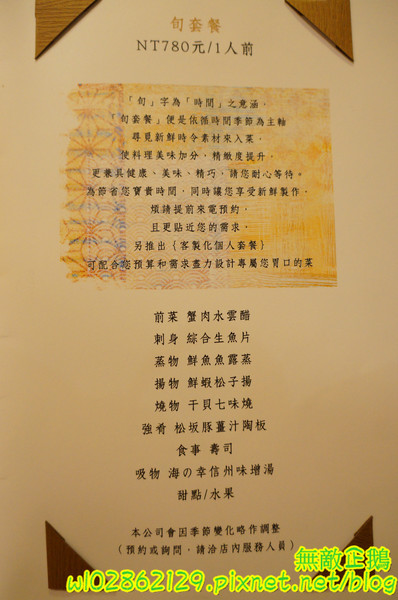 旬套餐
NT780元/1人前
「旬」字為「時間」之意涵，
「旬套餐」便是依循時間季節為主軸
尋覓新鮮時令素材來入菜，
使料理美味加分，精緻度提升，
更兼具健康、美味、精巧，請您耐心等待。
為節省您寶貴時間，同時讓您享受新鮮製作，
煩請提前來電預約，
且更貼近您的需求。
另推出{客製化個人套餐}
可配合您預算和需求盡力設計專屬您胃口的菜
前菜 蟹肉水雲醋
刺身 綜合生魚片
蒸物 鮮魚魚露蒸
揚物 鮮蝦松子揚
燒物 干貝七味燒
強肴 松坂豚薑汁陶板
食事 壽司
吸物 海の幸信州味增湯
甜點/水果
本公司會因季節變化略作調整
(預約或詢問，請洽店內服務人員)
無敵企鵝
w102862129.pixnet.net/blog